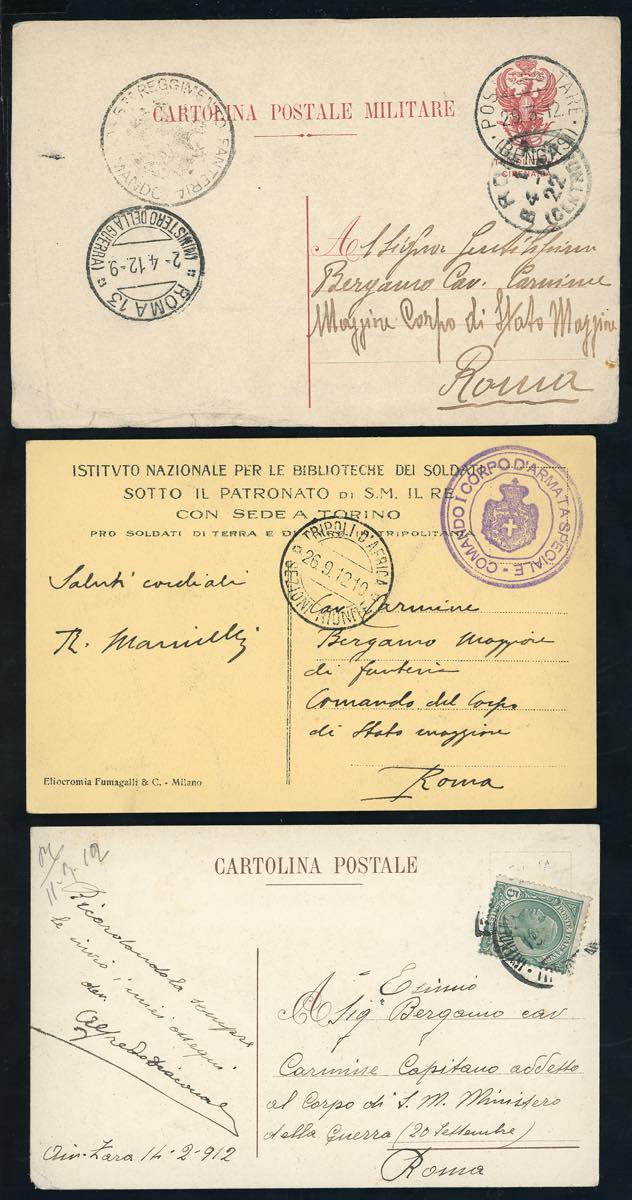 CARTOLINA POSTALE MILITARE
REGGIMENTO FANTERIA
POSTA MILITARE
(BENGASI)
(MINISTERO DELLA GUERRA)
2-4.12-9
ROMA 13
Al Signor
Bergamo Cav. Carmine
Maggiore Corpo di Stato Maggiore
Roma
ISTITVTO NAZIONALE PER LE BIBLIOTECHE DEI SOLDATI
SOTTO IL PATRONATO DI S.M. IL RE
CON SEDE A TORINO
PRO SOLDATI DI TERRA E DI MARE TRIPOLITANIA
COMANDO I CORPO D'ARMATA SPECIALE
TRIPOLI D'AFRICA
26.9.12.10
Saluti cordiali
Cav. Carmine
Bergamo Maggiore
di fanteria
Comando del Corpo
di Stato maggiore
Roma
Eliocromia Fumagalli & C. - Milano
CARTOLINA POSTALE
5
Ricordandola sempre
le invio i miei ossequi
Alfredo
Ain-Zara 14-2-912
Esimio
Sig. Bergamo cav
Carmine Capitano addetto
al Corpo di S. M. Ministero
della Guerra (20 Settembre)
Roma